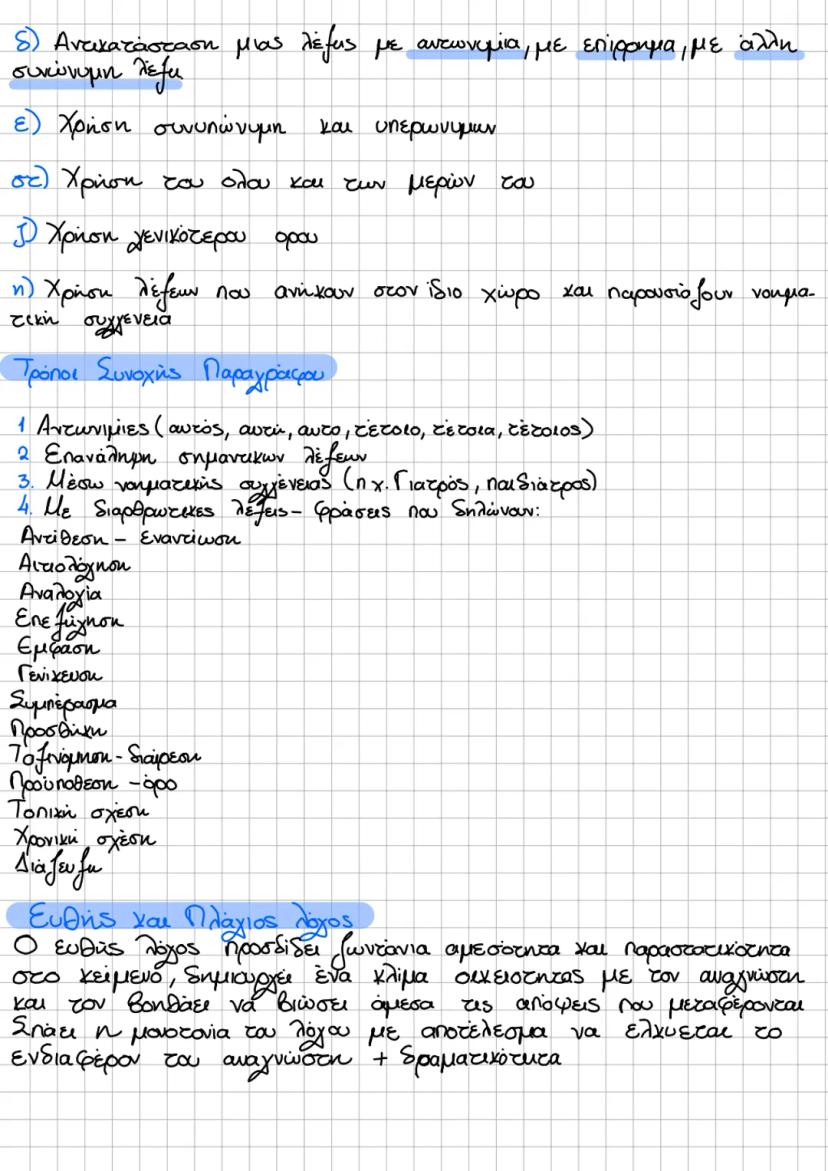 δ) Αντικατάσταση μιας λέξης με αντωνυμία, με επίρρημα, με άλλη
συνώνυμη λέξη
ε) Χρήση συνυπώνυμη και υπερωνυμων
στ) Χρήση του ολου και των μερών του
ζ) Χρήση γενικότερου ορου
η) Χρήση λέξεων που ανήκουν στον ίδιο χώρο και παρουσιάζουν νοημα-
τική συγγένεια
Τρόποι Συνοχής Παραγράφου
1 Αντωνιμίες (αυτός, αυτή, αυτο, τέτοιο, τέτοια, τέτοιος)
2 Επανάληψη σημαντικων λέξεων
3. Μέσω νοηματικής συγγένειας (π χ. Γιατρός, παιδιάτρος)
4. Με διαρθρωτικες λέξεις - φράσεις που δηλώνουν:
Αντίθεση - Εναντίωση
Αιτιολόγηση
Αναλογία
Επεξήγηση
Εμφαση
Γενίκευση
Συμπέρασμα
Προσθήκη
Ταξινόμηση - διαίρεση
Προϋποθεση - όρο
Τοπική σχέση
Χρονική σχέση
Διάζευξη
Ευθής και Πλάγιος λόγος
Ο ευθύς λόγος προσδίδει ζωντάνια αμεσότητα και παραστατικότητα
στο κείμενό, δημιουργεί ένα κλίμα οικειοτητας με τον αναγνώστη
και τον βοηθάει νά βιώσει άμεσα τις απόψεις που μεταφέρονται
Σπάει η μονοτονία του λόγου με αποτέλεσμα να ελκυεται το
ενδιαφέρον του αναγνώστη + δραματικότητα